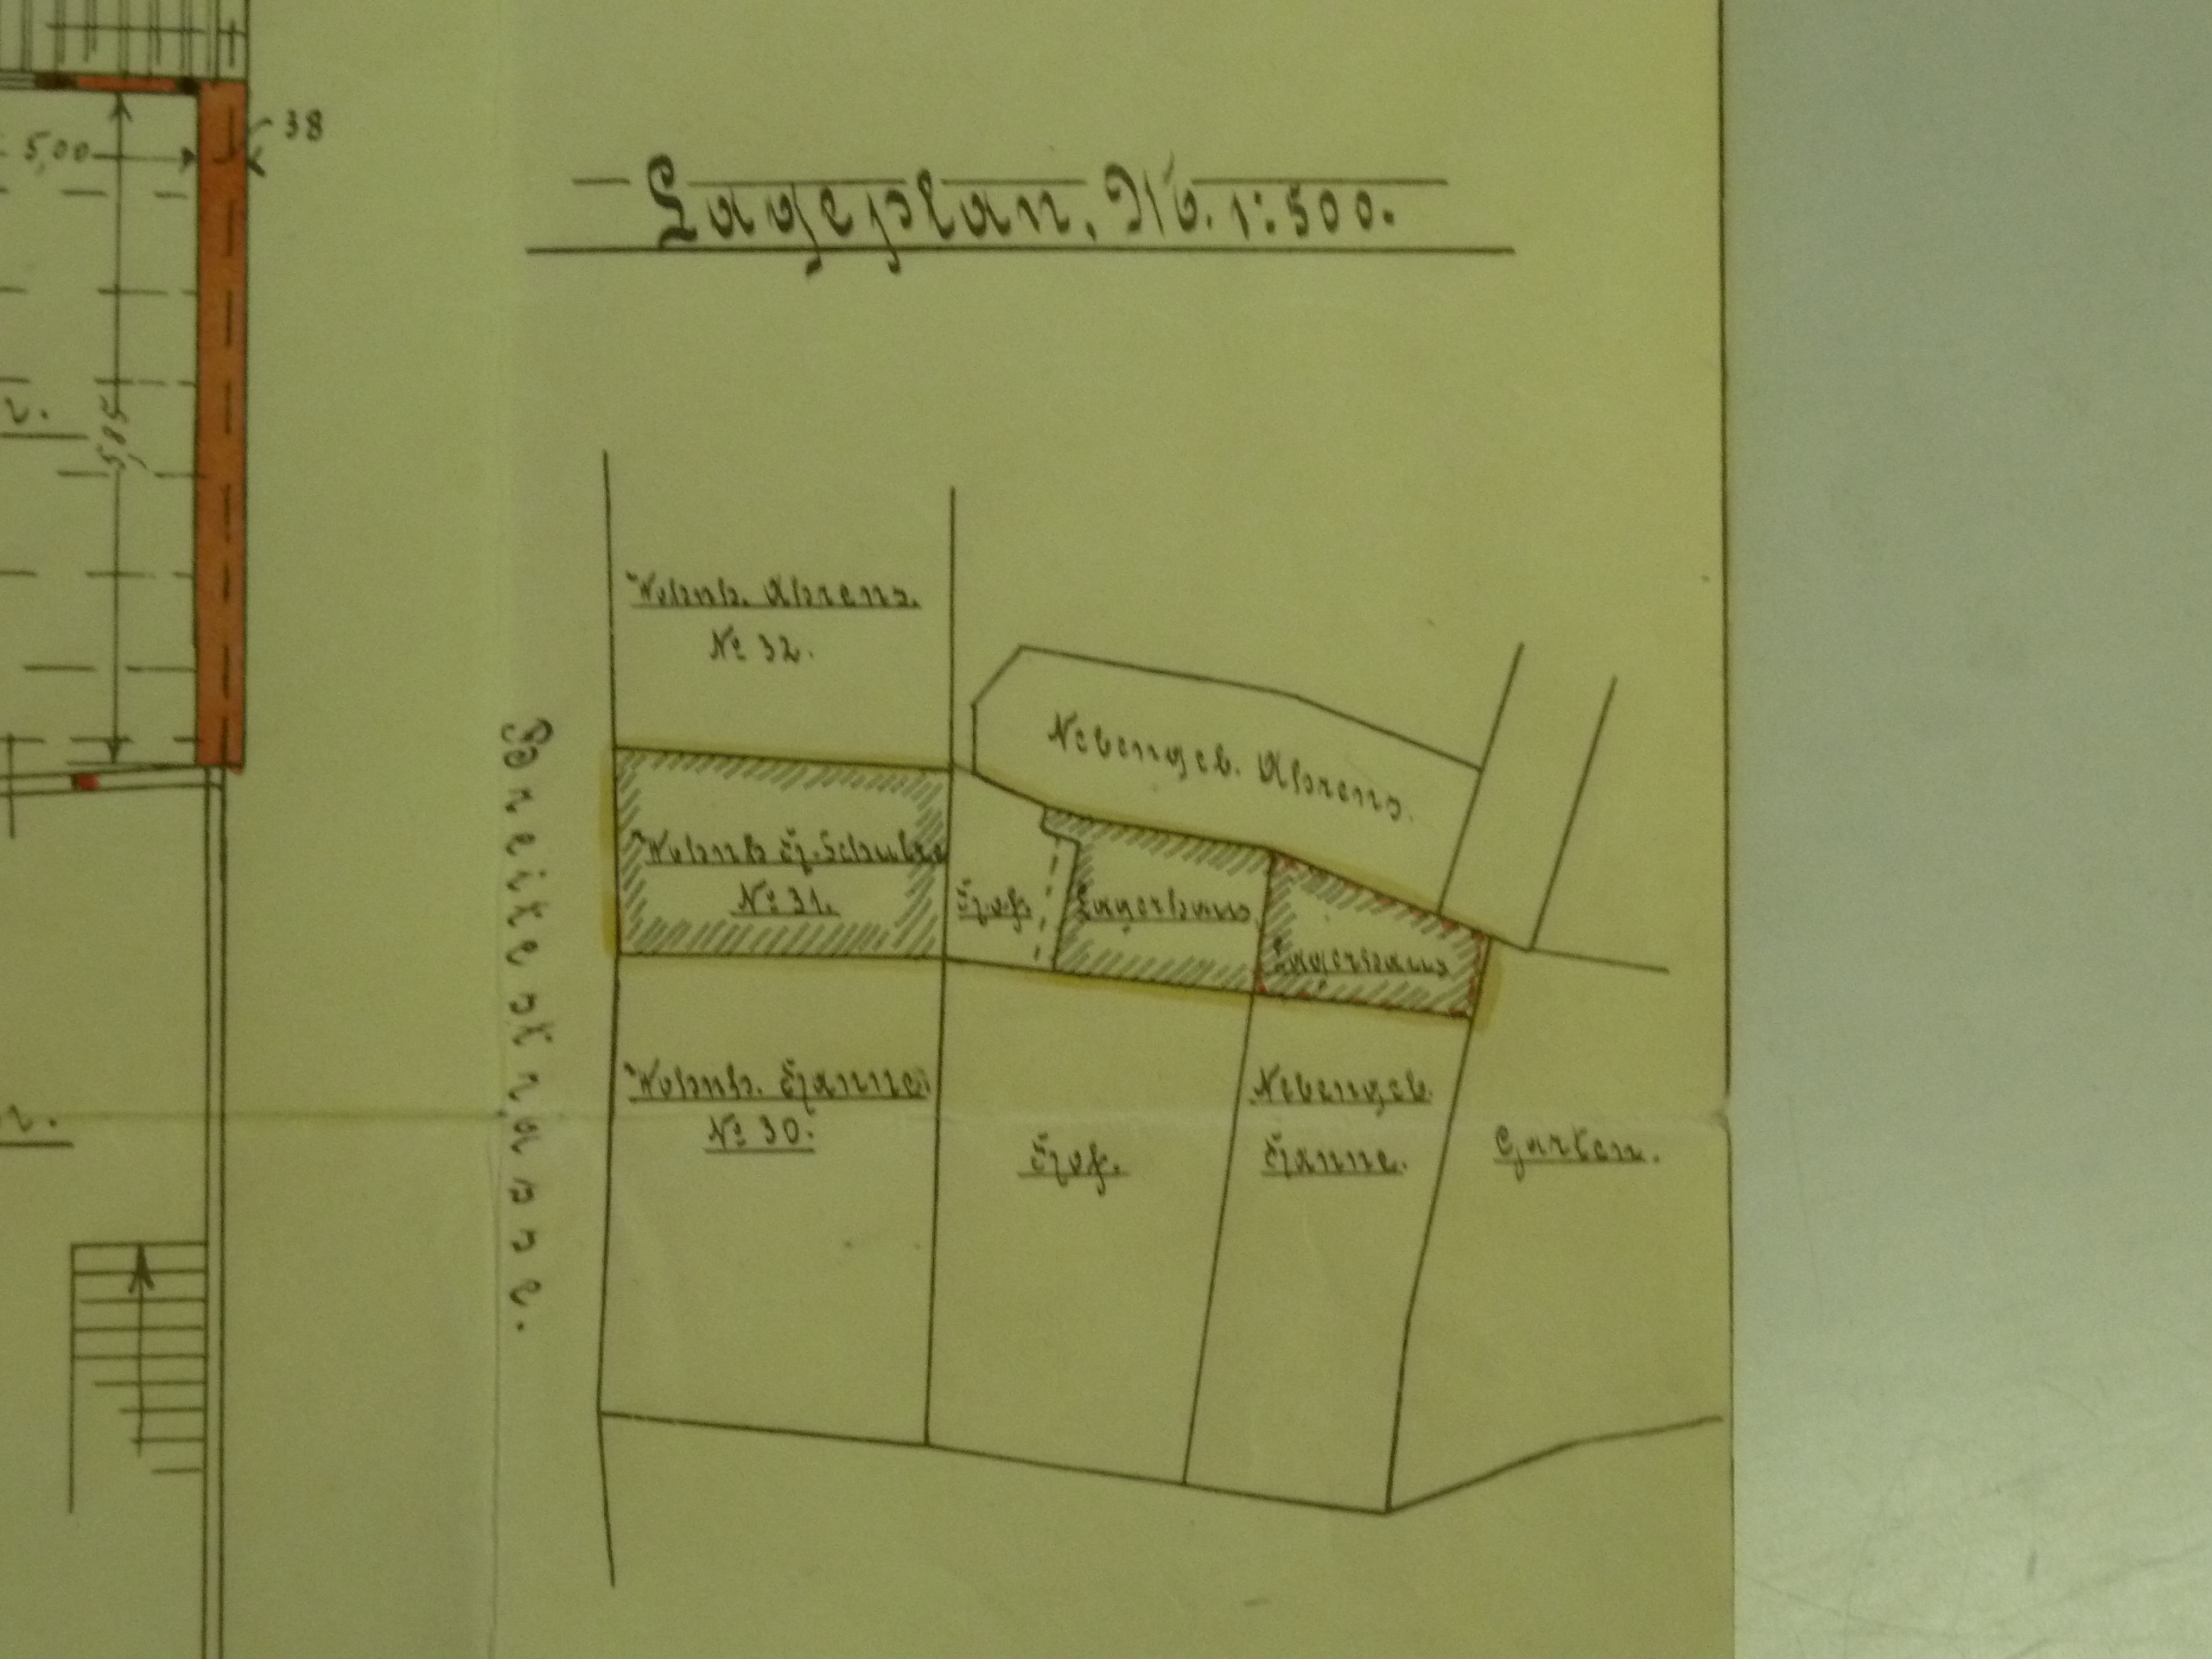 38
5,00
5,85
Lageplan. M. 1:500.
Wohnh. Ahrens.
№ 32.
Nebengeb. Ahrens.
Breitestrasse.
Wohnh. H. Schulze
№ 31.
Hof.
Lagerhaus
Lagerhaus
Wohnh. Hanne
№ 30.
Hof.
Nebengeb.
Hanne.
Garten.